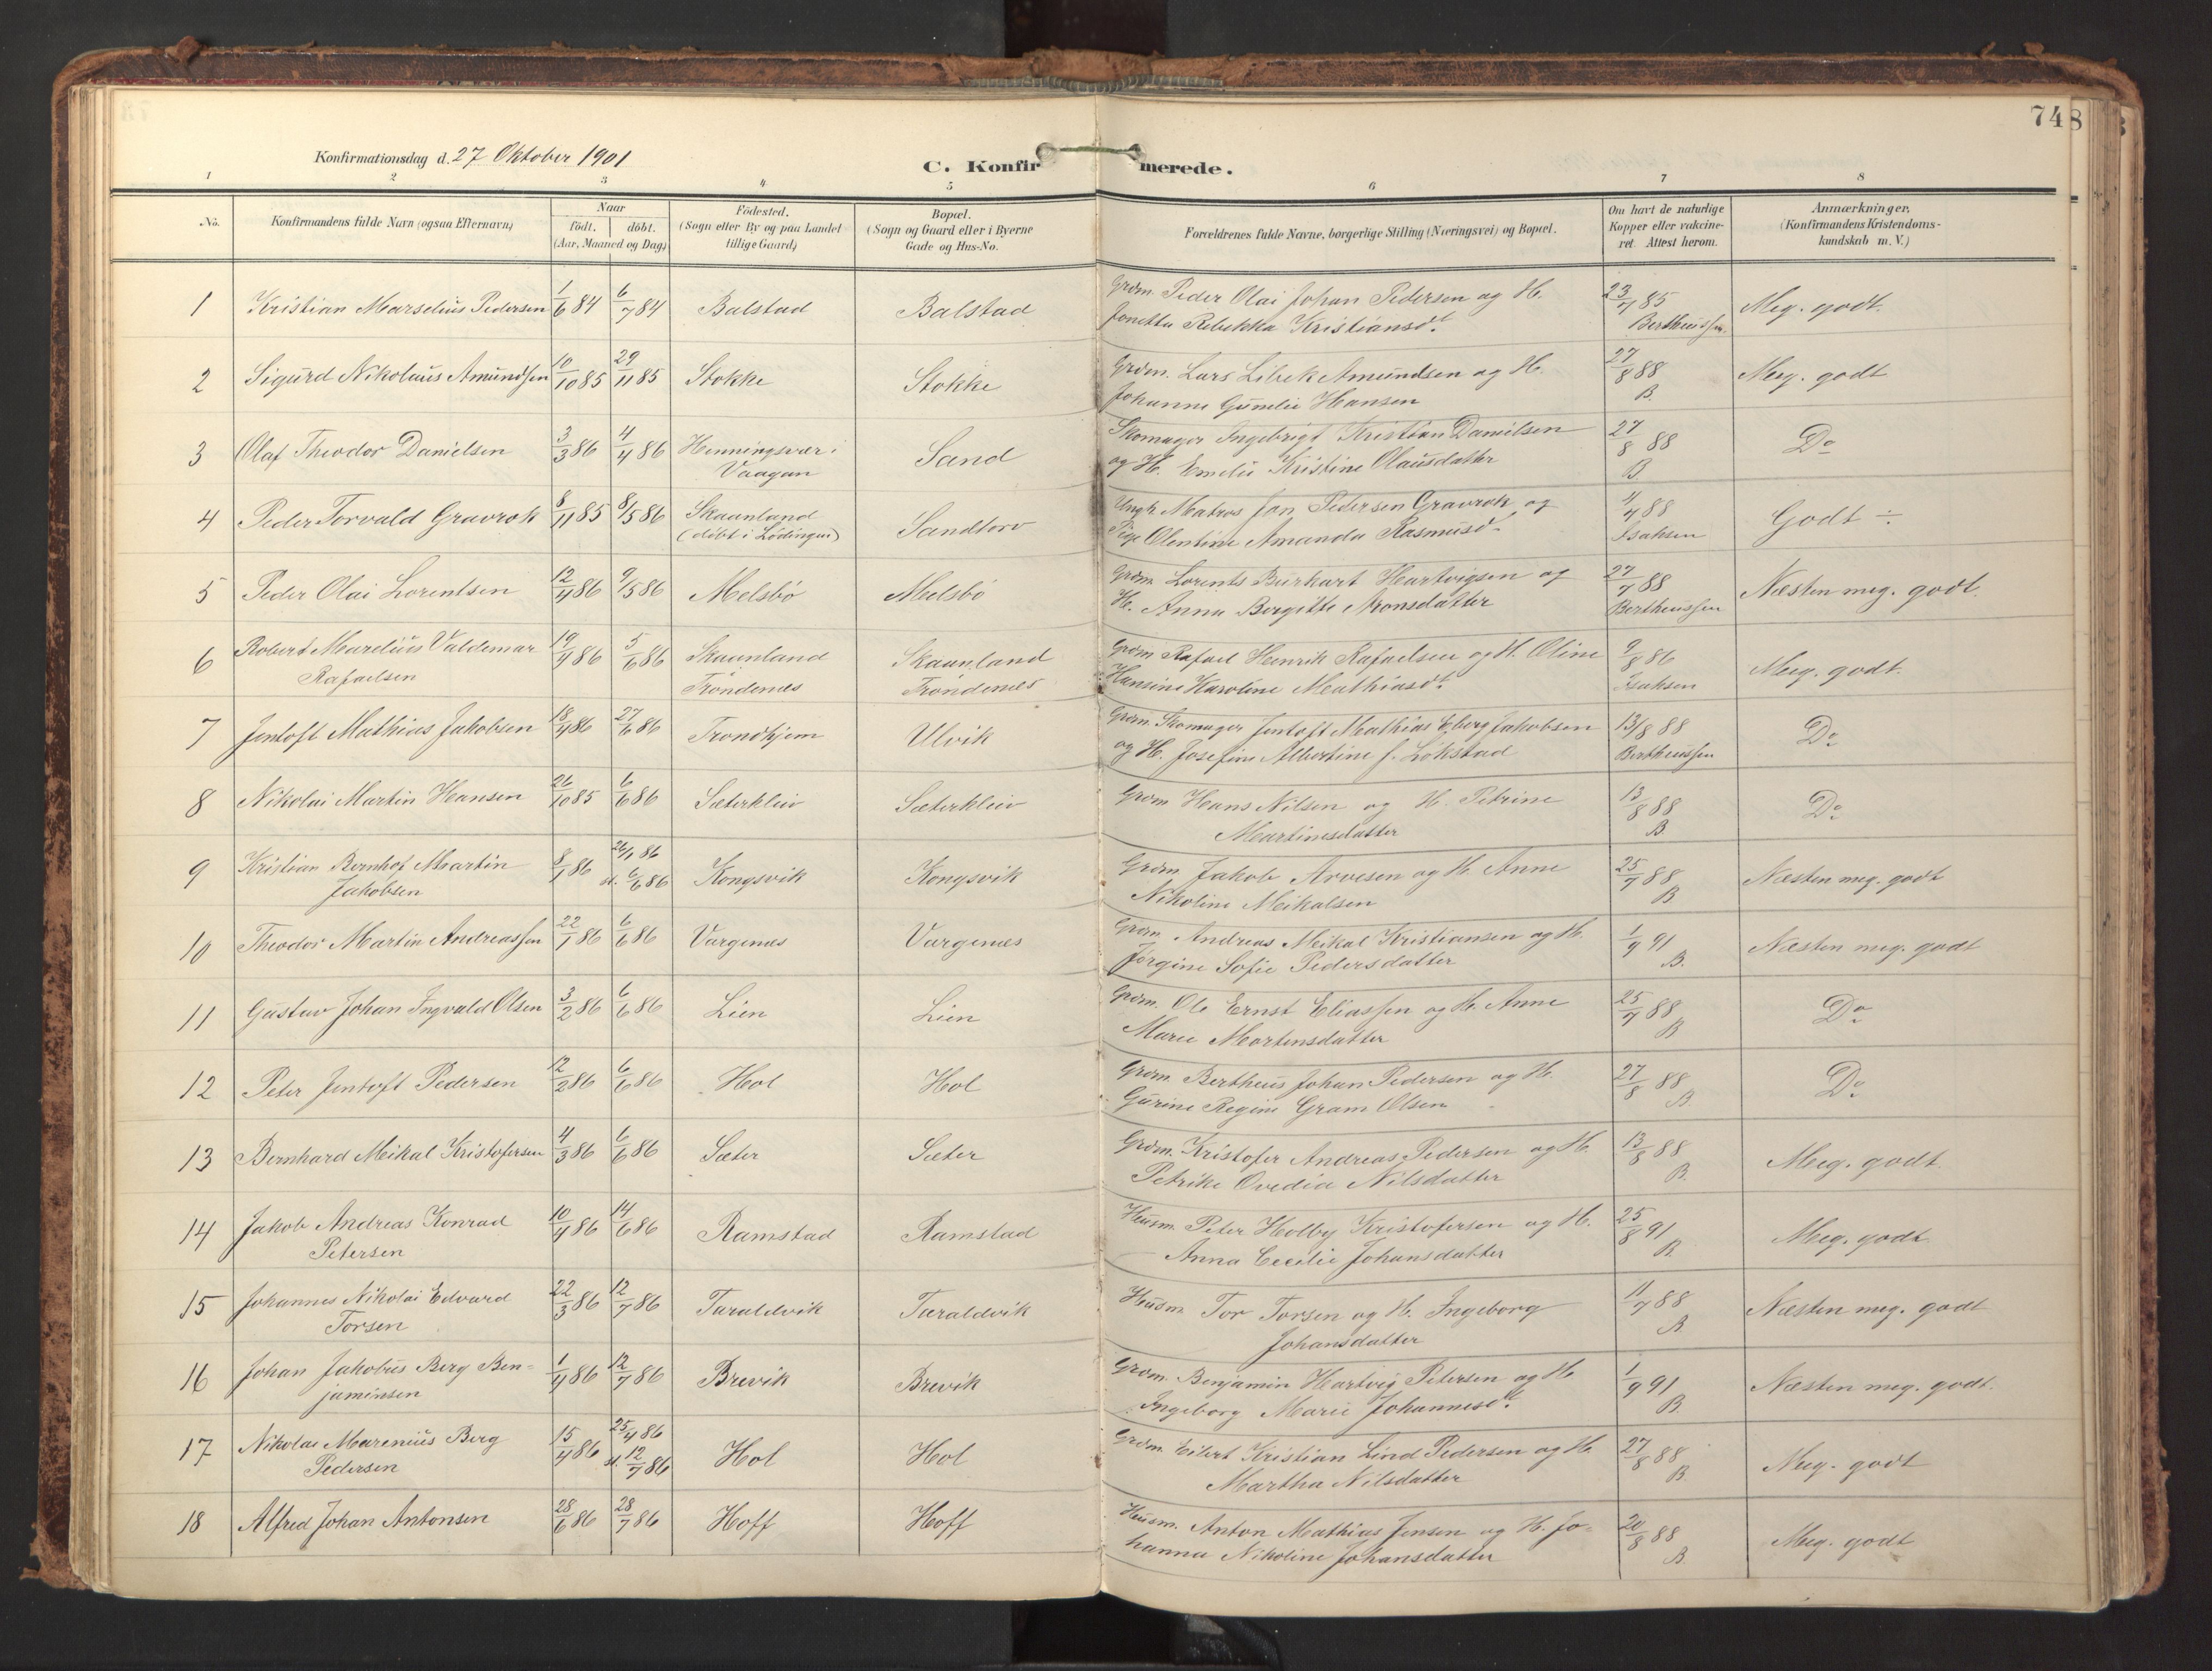 74
8
Konfirmationsdag d. 27 Oktober 1901
C. Konfirmerede.
1 2 3 4 5 6 7 8
No.
Konfirmandens fulde Navn (ogsaa Efternavn)
Naar
födt. döbt.
(Aar, Maaned og Dag)
Födested.
(Sogn eller By og paa Landet
tillige Gaard)
Bopæl.
(Sogn og Gaard eller i Byerne
Gade og Hus-No.
Forældrenes fulde Navne, borgerlige Stilling (Næringsvei) og Bopæl.
Om havt de naturlige
Kopper eller vakcine-
ret. Attest herom.
Anmærkninger.
(Konfirmandens Kristendoms-
kundskab m. V.)
1 Kristian Marselius Pedersen 1/6 84 6/7 84 Balstad Balstad Grdm. Peder Olai Johan Pedersen og H. 23/7 85 Meg. godt.
Jonetta Rebekka Kristiansdt. Bertheussen.
2 Sigurd Nikolaus Amundsen 10/10 85 29/11 85 Stokke Stokke Grdm. Lars Libek Amundsen og H. 27/8 88 Meg. godt
Johanna Gurelie Hansen B.
3 Olaf Theodor Danielsen 3/3 86 4/4 86 Henningsvær i Sand Skomager Ingebrigt Kristian Danielsen 27/8 88 Do
Vaagan og H. Emelie Kristine Olausdatter B.
4 Peder Torvald Gravrok 8/11 85 8/5 86 Skaanland Sandtorv Ungk. Matros Jan Pedersen Gravrok og 4/4 88 Godt ÷
(döbt i Lödingen) Pige Olentine Amanda Rasmusdt. Isaksen
5 Peder Olai Lorentsen 12/4 86 9/5 86 Melsbö Melsbö Grdm. Lorents Burkart Hartvigsen og 27/7 88 Næsten meg. godt.
H. Anna Bergitte Aronsdatter Bertheussen
6 Robert Marelius Valdemar 19/4 86 5/6 86 Skaanland Skaanland Grdm Rafael Henrik Rafaelsen og H. Oline 9/8 86 Meg. godt.
Rafaelsen Tröndenes Tröndenes Hansine Karoline Mathiasdt. Isaksen
7 Jentoft Mathias Jakobsen 18/4 86 27/6 86 Trondhjem Ulvik Grdm. Skomager Jentoft Mathias Eberg Jakobsen 13/8 88 Do
og H. Josefine Albertine f. Lökstad Bertheussen
8 Nikolai Martin Hansen 26/10 85 6/6 86 Sæterkleiv Sæterkleiv Grdm Hans Nilsen og H. Petrine 13/8 88 Do
Martinesdatter B.
9 Kristian Bernhof Martin 8/1 86 24/1 86 Kongsvik Kongsvik Grdm. Jakob Arvesen og H. Anne 25/7 88 Næsten meg. godt
Jakobsen st. 6/6 86 Nikoline Meikalsen B
10 Theodor Martin Andreassen 22/1 86 6/6 86 Vargenes Vargenes Grdm. Andreas Meikal Kristiansen og H. 1/9 91 Næsten meg. godt
Jörgine Sofie Pedersdatter B.
11 Gustav Johan Ingvald Olsen 3/2 86 6/6 86 Lien Lien Grdm. Ole Ernst Eliassen og H. Anne 25/7 88 Do
Marie Mortensdatter B
12 Peter Jentoft Pedersen 12/2 86 6/6 86 Hol Hol Grdm. Bertheus Johan Pedersen og H. 27/8 88 Do
Gurine Regine Gram Olsen B.
13 Bernhard Meikal Kristofersen 4/3 86 6/6 86 Sæter Sæter Grdm. Kristofer Andreas Pedersen og H. 13/8 88 Meg. godt.
Petrike Ovedia Nilsdatter B.
14 Jakob Andreas Konrad 10/4 86 14/6 86 Ramstad Ramstad Husm. Peter Holby Kristofersen og H. 25/8 91 Meg. godt.
Petersen Anna Cecilie Johansdatter B.
15 Johannes Nikolai Edvard 22/3 86 12/7 86 Taraldvik Taraldvik Husm. Tor Torsen og H. Ingeborg 11/7 88 Næsten meg. godt
Torsen Johansdatter B.
16 Johan Jakobus Berg Ben- 1/4 86 12/7 86 Brevik Brevik Grdm. Benjamin Hartvig Petersen og H 1/9 91 Næsten meg. godt.
jaminsen Ingeborg Marie Johannesdt. B.
17 Nikolai Marenius Berg 15/4 86 25/4 86 Hol Hol Grdm. Eilert Kristian Lind Pedersen og H. 27/8 88 Meg. godt
Pedersen st. 12/7 86 Martha Nilsdatter B.
18 Alfred Johan Antonsen 28/6 86 28/7 86 Hoff Hoff Husm. Anton Mathias Jensen og H. Jo- 20/8 88 Meg. godt
hanna Nikoline Johansdatter B.